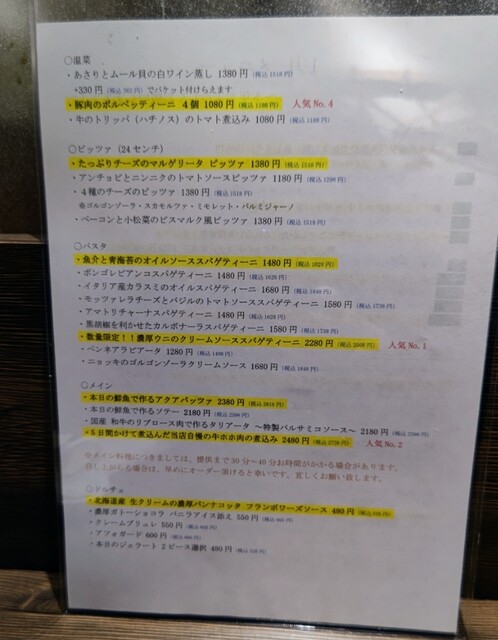 ○温菜
・あさりとムール貝の白ワイン蒸し 1380円 (税込1518円)
+330円 (税込363円) でバケット付けらえます
・豚肉のポルペッティーニ 4個 1080円 (税込1188円) 人気No.4
・牛のトリッパ（ハチノス）のトマト煮込み 1080円 (税込1188円)
○ピッツァ（24センチ）
・たっぷりチーズのマルゲリータ ピッツァ 1380円 (税込1518円)
・アンチョビとニンニクのトマトソースピッツァ 1180円 (税込1298円)
・4種のチーズのピッツァ 1380円 (税込1518円)
※ゴルゴンゾーラ・スカモルツァ・ミモレット・パルミジャーノ
・ベーコンと小松菜のビスマルク風ピッツァ 1380円 (税込1518円)
○パスタ
・魚介と青海苔のオイルソーススパゲティーニ 1480円 (税込1628円)
・ボンゴレビアンコスパゲティーニ 1480円 (税込1628円)
・イタリア産カラスミのオイルスパゲティーニ 1680円 (税込1848円)
・モッツァレラチーズとバジルのトマトソーススパゲティーニ 1580円 (税込1738円)
・アマトリチャーナスパゲティーニ 1480円 (税込1628円)
・黒胡椒を利かせたカルボナーラスパゲティーニ 1580円 (税込1738円)
・数量限定！！濃厚ウニのクリームソーススパゲティーニ 2280円 (税込2508円) 人気No.1
・ペンネアラビアータ 1280円 (税込1408円)
・ニョッキのゴルゴンゾーラクリームソース 1680円 (税込1848円)
○メイン
・本日の鮮魚で作るアクアパッツァ 2380円 (税込2618円)
・本日の鮮魚で作るソテー 2180円 (税込2398円)
・国産 和牛のリブロース肉で作るタリアータ ～特製バルサミコソース～ 2180円 (税込2398円)
・5日間かけて煮込んだ当店自慢の牛ホホ肉の煮込み 2480円 (税込2728円) 人気No.2
※メイン料理につきましては、提供まで30分～40分お時間がかかる場合があります。
召し上がる場合は、早めにオーダー頂けると幸いです。宜しくお願い致します。
○ドルチェ
・北海道産 生クリームの濃厚パンナコッタ フランボワーズソース 480円 (税込528円)
・濃厚ガトーショコラ バニラアイス添え 550円
・クレームブリュレ 550円
・アフォガード 600円 (税込660円)
・本日のジェラート 2ピース選択 480円 (税込528円)